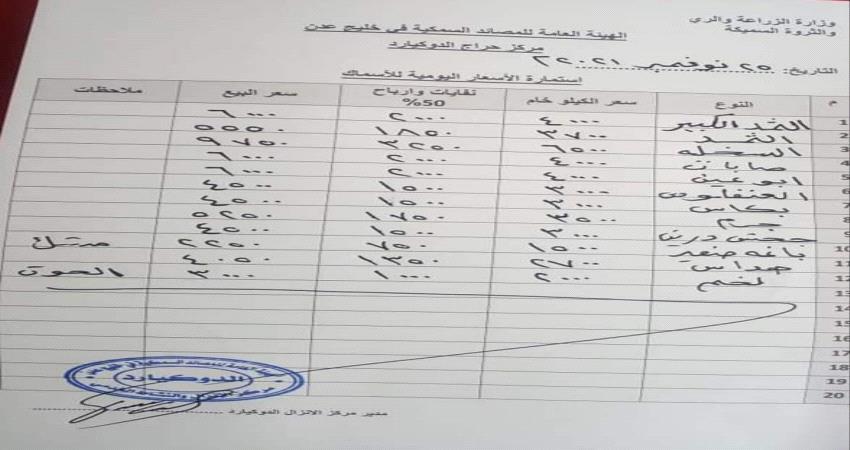 وزارة الزراعة والري
والثروة السمكية
الهيئة العامة للمصائد السمكية في خليج عدن
مركز حراج الدوكيارد
التاريخ: ٢٥ نوفمبر ٢٠٢١
استمارة الأسعار اليومية للأسماك
م النوع سعر الكيلو خام نقايات وارباح 50% سعر البيع ملاحظات
1 الثمد الكبير ٤٠٠٠ ٢٠٠٠ ٦٠٠٠
2 الثمد ٣٧٠٠ ١٨٥٠ ٥٥٥٠
3 السخله ٦٥٠٠ ٣٢٥٠ ٩٧٥٠
4 ٤٠٠٠ ٢٠٠٠ ٦٠٠٠
5 ابو عين ٤٠٠٠ ٢٠٠٠ ٦٠٠٠
6 ٣٠٠٠ ١٥٠٠ ٤٥٠٠
7 بكاس ٣٠٠٠ ١٥٠٠ ٤٥٠٠
8 ٣٥٠٠ ١٧٥٠ ٥٢٥٠
9 ٣٠٠٠ ١٥٠٠ ٤٥٠٠
10 باغه صغير ١٥٠٠ ٧٥٠ ٢٢٥٠
11 ٢٧٠٠ ١٣٥٠ ٤٠٥٠
12 لخم ٢٠٠٠ ١٠٠٠ ٣٠٠٠
13
14
15
16
17
18
19
20
الدوكيارد
مدير مركز الانزال الدوكيارد